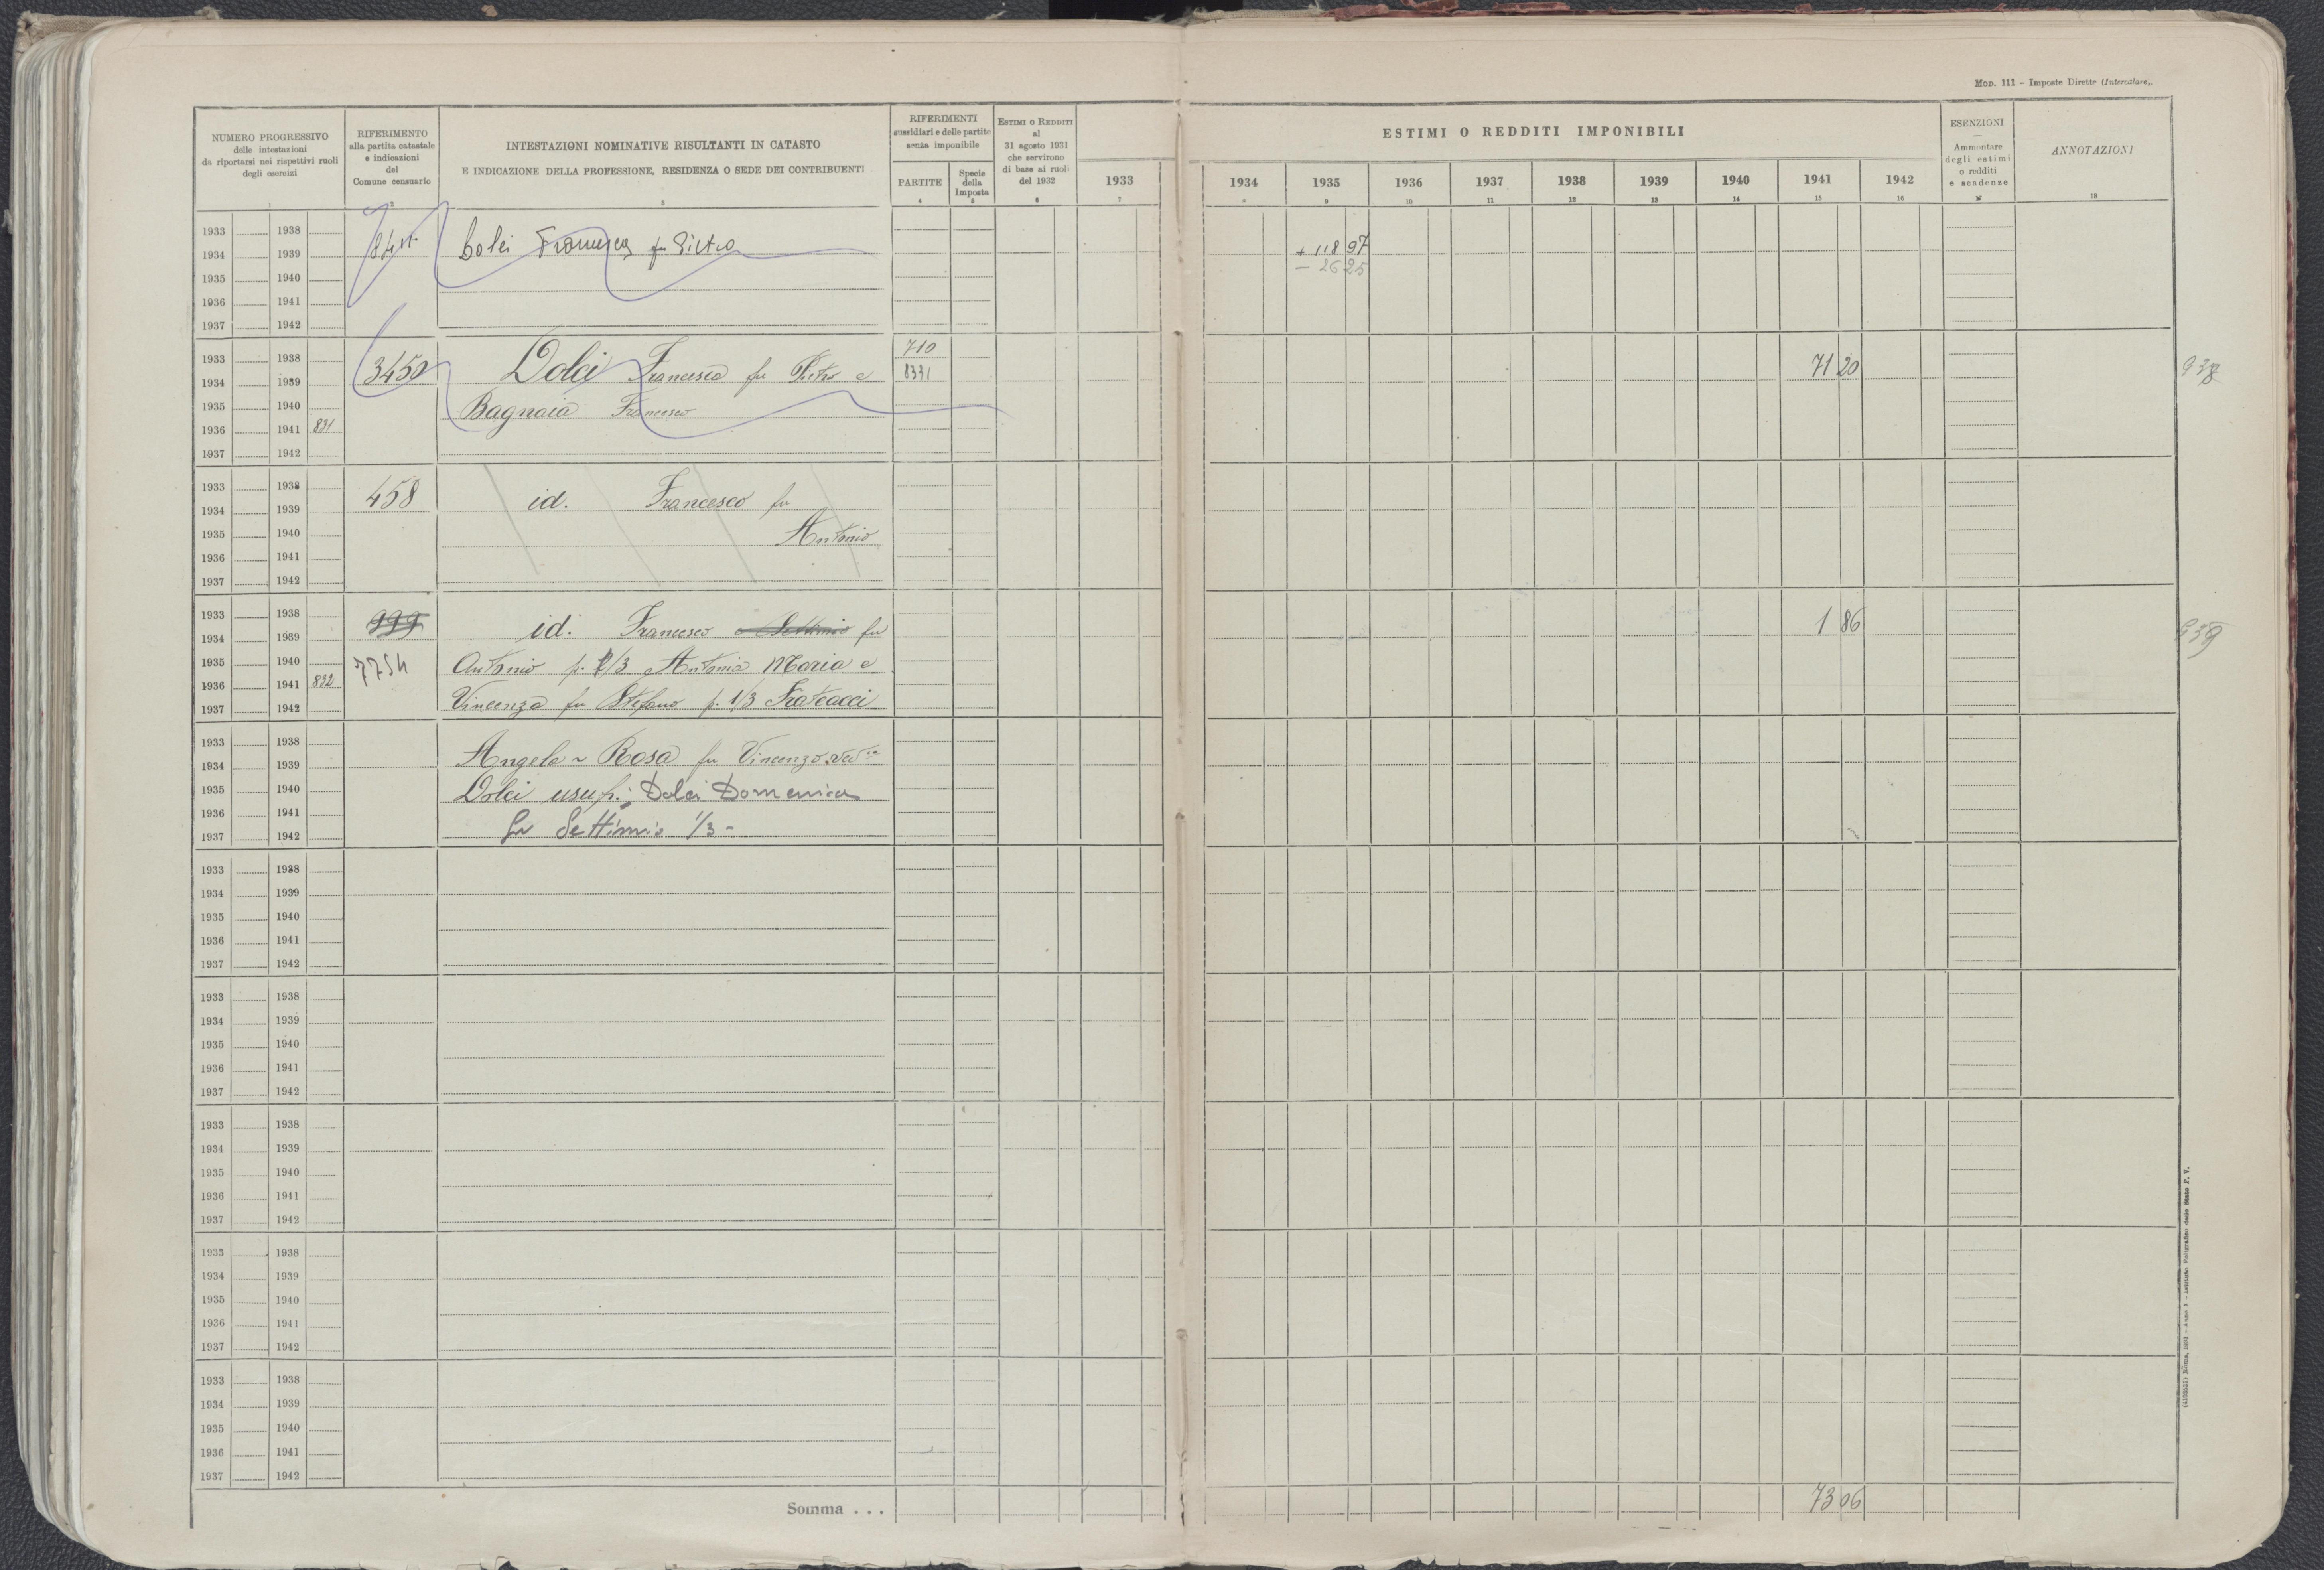 MOD. 111 – Imposte Dirette (Intercalare).
NUMERO PROGRESSIVO
delle intestazioni
da riportarsi nei rispettivi ruoli
degli esercizi
RIFERIMENTO
alla partita catastale
e indicazioni
del
Comune censuario
INTESTAZIONI NOMINATIVE RISULTANTI IN CATASTO
E INDICAZIONE DELLA PROFESSIONE, RESIDENZA O SEDE DEI CONTRIBUENTI
RIFERIMENTI
sussidiari e delle partite
senza imponibile
PARTITE
Specie
della
Imposta
ESTIMI O REDDITI
al
31 agosto 1931
che servirono
di base ai ruoli
del 1932
ESTIMI O REDDITI IMPONIBILI
1933 1934 1935 1936 1937 1938 1939 1940 1941 1942
ESENZIONI
—
Ammontare
degli estimi
o redditi
e scadenze
ANNOTAZIONI
1 2 3 4 5 6 7 8 9 10 11 12 13 14 15 16 17 18
1933 1938
1934 1939 Francesco fu Pietro + 118 97
1935 1940 – 26 25
1936 1941
1937 1942
1933 1938 710
1934 1939 3450 Dolci Francesco fu Pietro e 8331 71 20 938
1935 1940 Bagnaia Francesco
1936 1941 831
1937 1942
1933 1938
1934 1939 458 id. Francesco fu
1935 1940 Antonio
1936 1941
1937 1942
1933 1938 999
1934 1939 id. Francesco e Settimio fu 1 86 939
1935 1940 7754 Antonio p. 1/3 Antonia Maria e
1936 1941 832
1937 1942 Vincenza fu Stefano p. 1/3 Frateacci
1933 1938
1934 1939 Angela Rosa fu Vincenzo ved.
1935 1940 Dolci usuf. ; Dolci Domenica
1936 1941
1937 1942 fu Settimio 1/3 -
1933 1938
1934 1939
1935 1940
1936 1941
1937 1942
1933 1938
1934 1939
1935 1940
1936 1941
1937 1942
1933 1938
1934 1939
1935 1940
1936 1941
1937 1942
1933 1938
1934 1939
1935 1940
1936 1941
1937 1942
1933 1938
1934 1939
1935 1940
1936 1941
1937 1942
Somma . . . 73 06